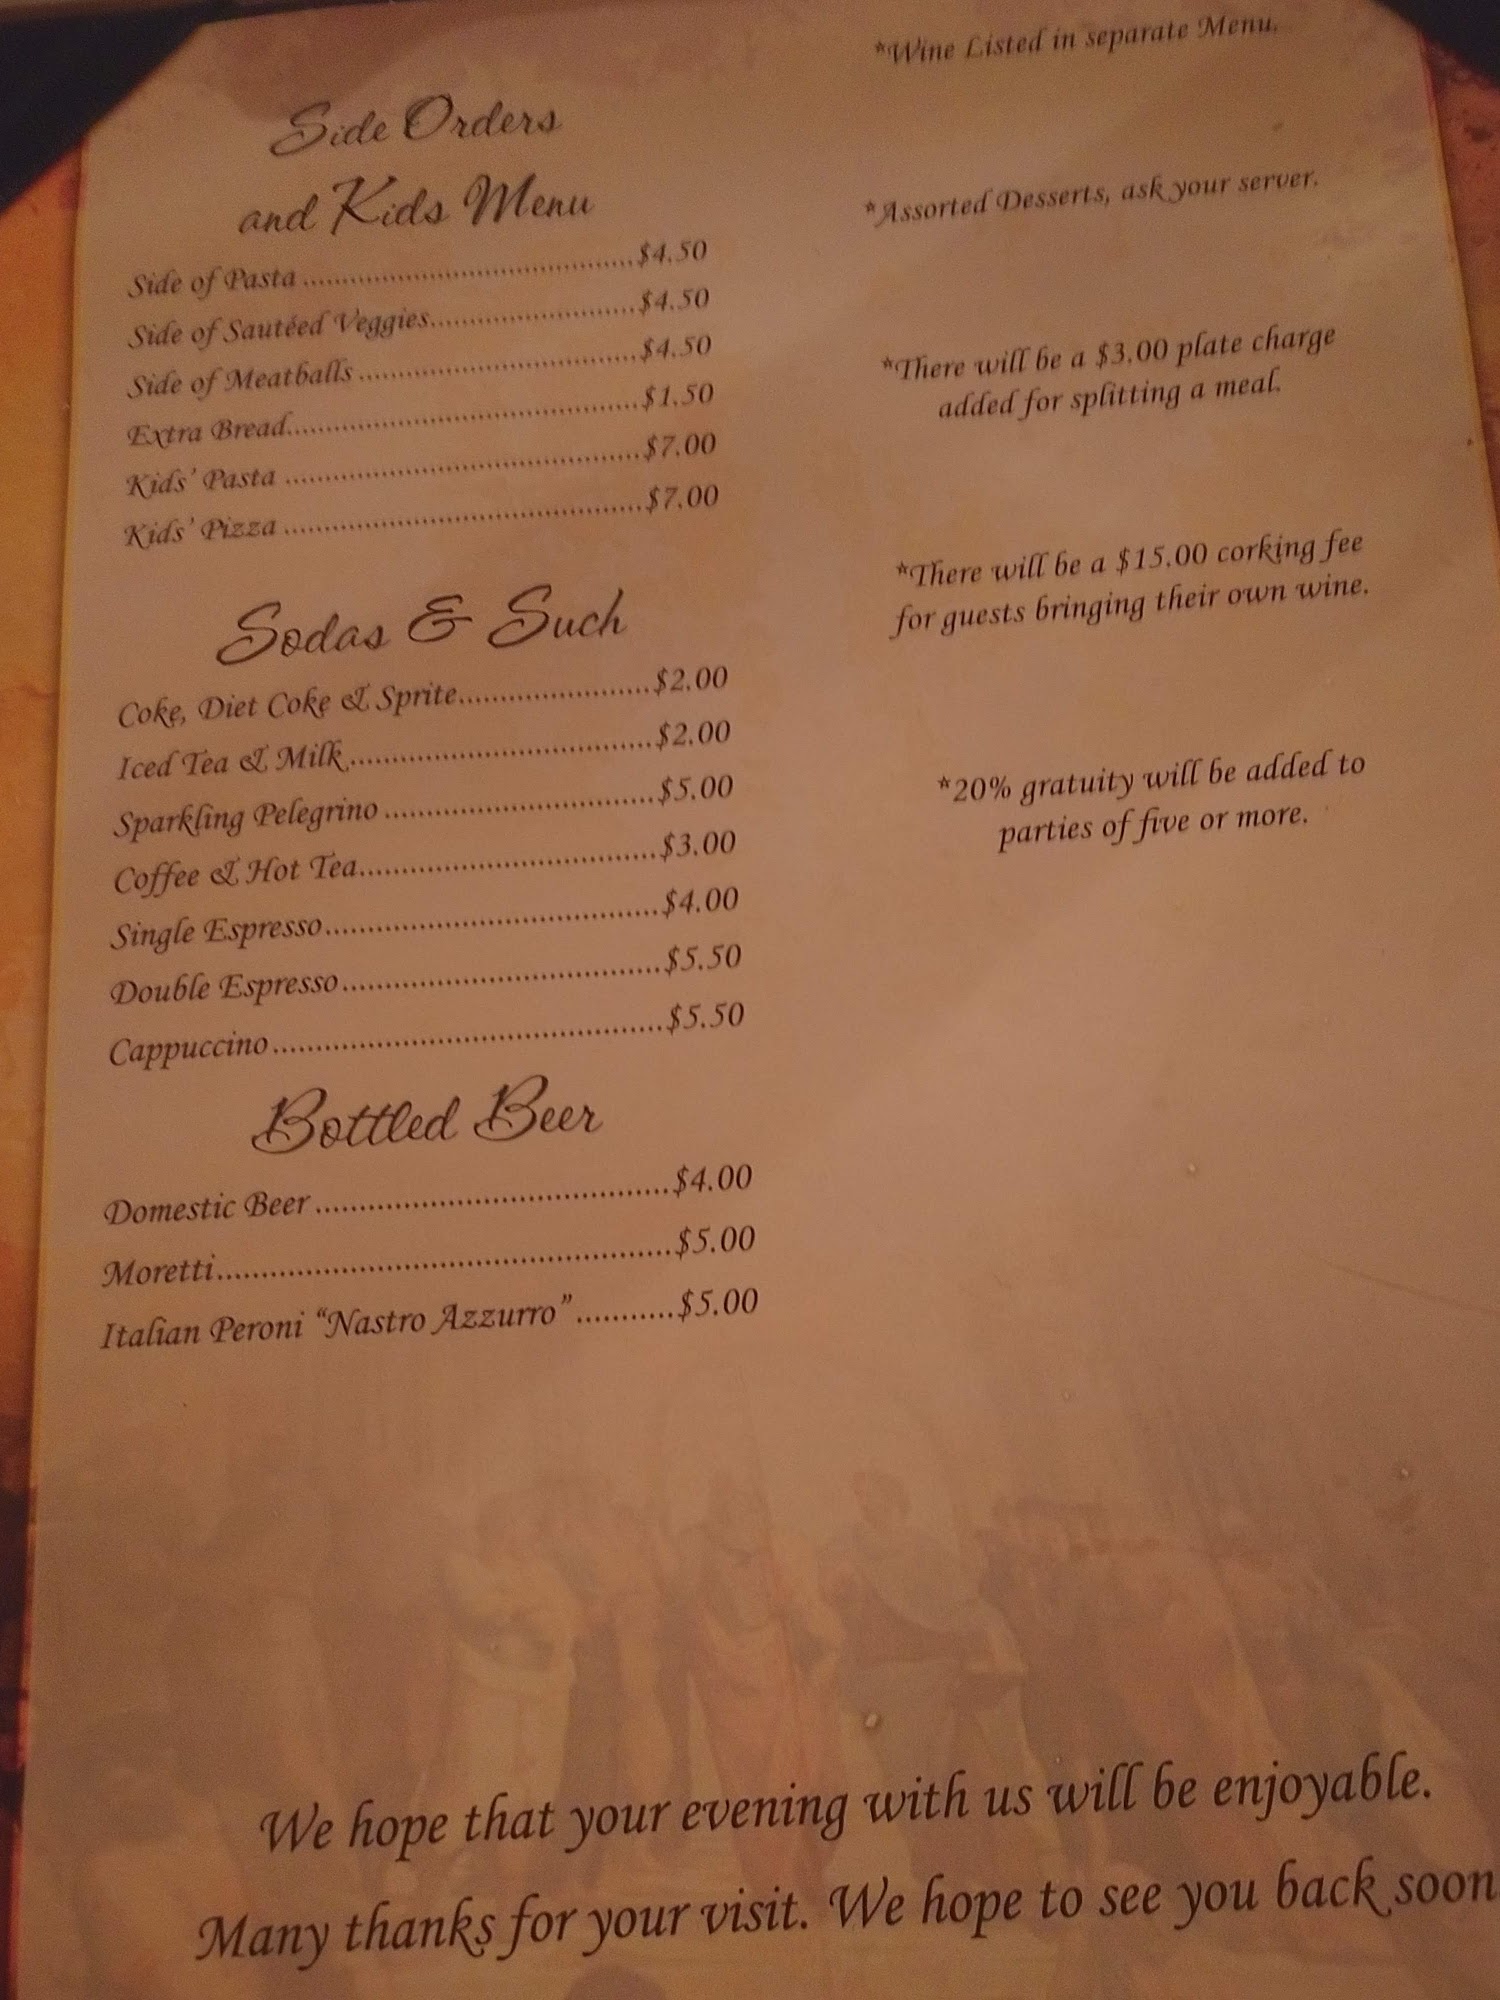 Side Orders
and Kids Menu
Side of Pasta ........................................$4.50
Side of Sautéed Veggies.........................$4.50
Side of Meatballs ..................................$4.50
Extra Bread...........................................$1.50
Kids' Pasta ...........................................$7.00
Kids' Pizza ...........................................$7.00
Sodas & Such
Coke, Diet Coke & Sprite......................$2.00
Iced Tea & Milk...................................$2.00
Sparkling Pelegrino ..............................$5.00
Coffee & Hot Tea..................................$3.00
Single Espresso.....................................$4.00
Double Espresso....................................$5.50
Cappuccino...........................................$5.50
Bottled Beer
Domestic Beer .......................................$4.00
Moretti..................................................$5.00
Italian Peroni “Nastro Azzurro” ...........$5.00
*Wine Listed in separate Menu.
*Assorted Desserts, ask your server.
*There will be a $3.00 plate charge
added for splitting a meal.
*There will be a $15.00 corking fee
for guests bringing their own wine.
*20% gratuity will be added to
parties of five or more.
We hope that your evening with us will be enjoyable.
Many thanks for your visit. We hope to see you back soon